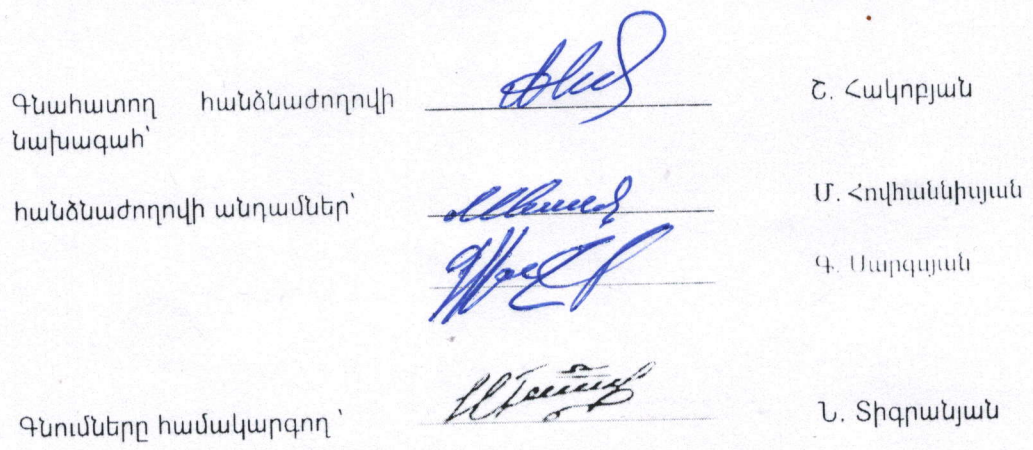 Գնահատող հանձնաժողովի Շ. Հակոբյան
նախագահ՝
հանձնաժողովի անդամներ՝ Մ. Հովհաննիսյան
Գ. Սարգսյան
Գնումները համակարգող ՝ Ն. Տիգրանյան